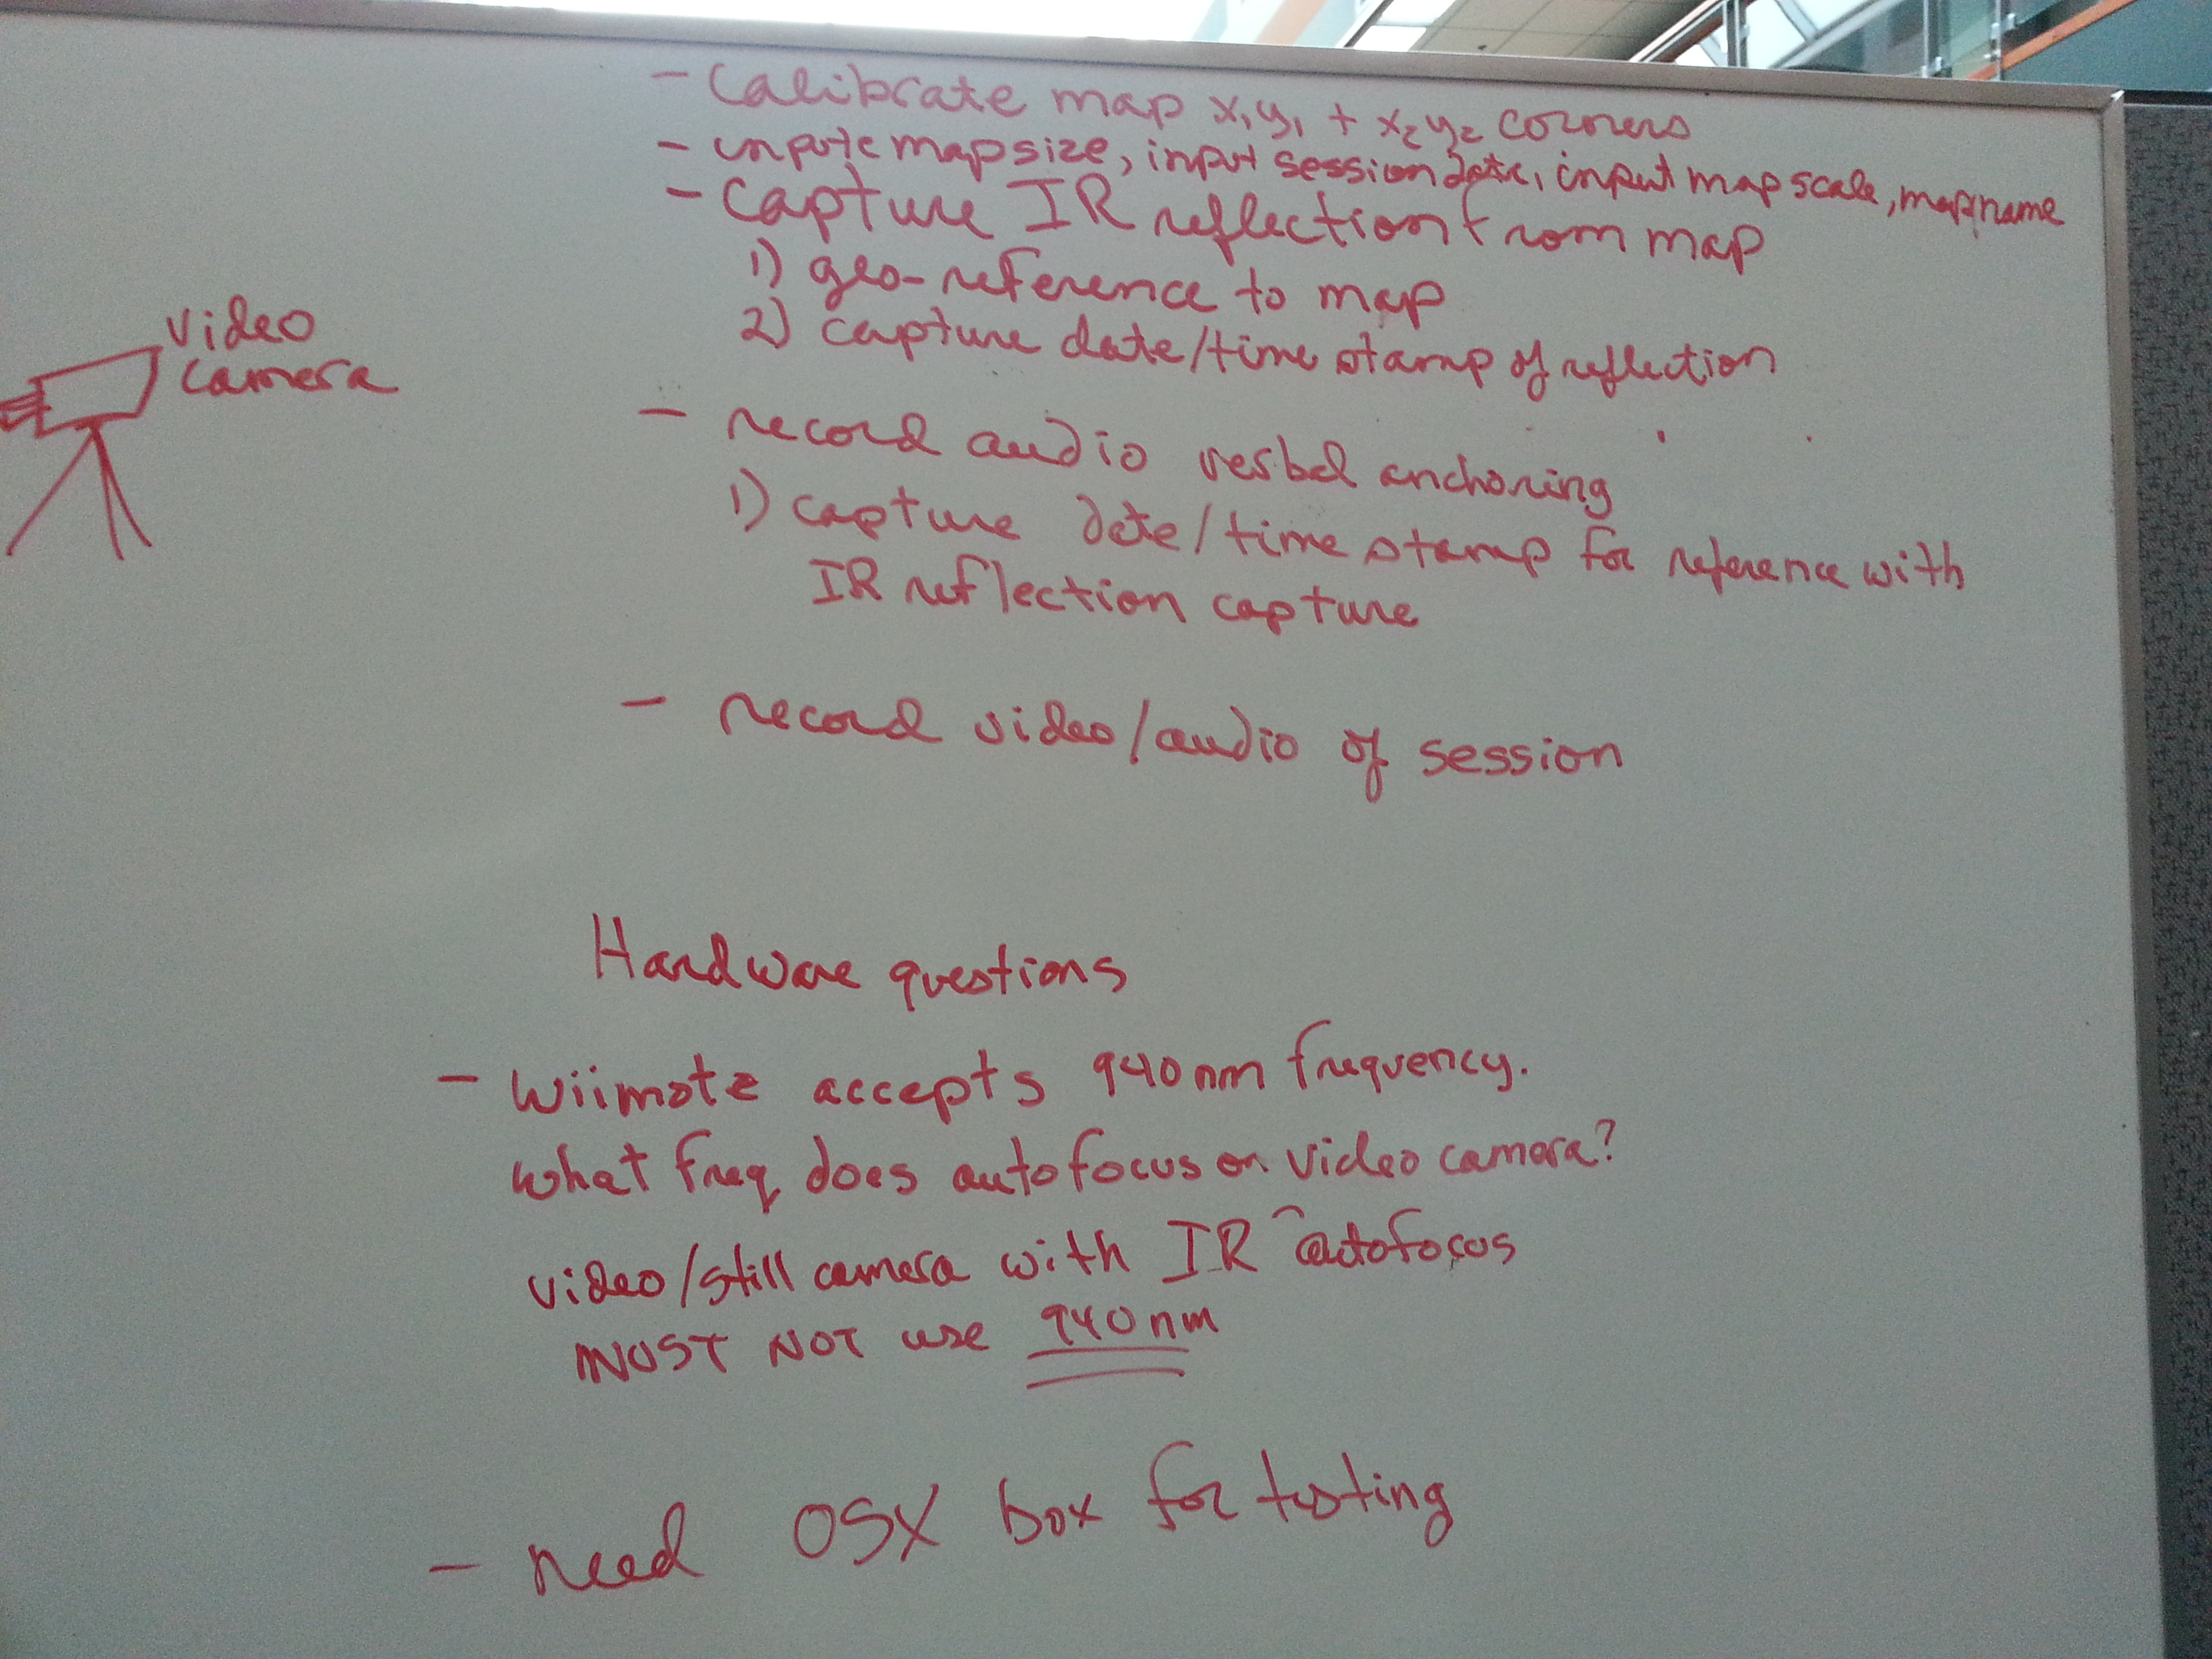 - Calibrate map x₁y₁ + x₂y₂ corners
- inpute mapsize, input session date, input map scale, map name
- Capture IR reflection from map
1) geo-reference to map
2) capture date/time stamp of reflection
video
camera
- record audio verbal anchoring
1) capture date/time stamp for reference with
IR reflection capture
- record video/audio of session
Hardware questions
- wiimote accepts 940nm frequency.
what freq does autofocus on video camera?
video/still camera with IR autofocus
MUST NOT use 940nm
- need OSX box for testing